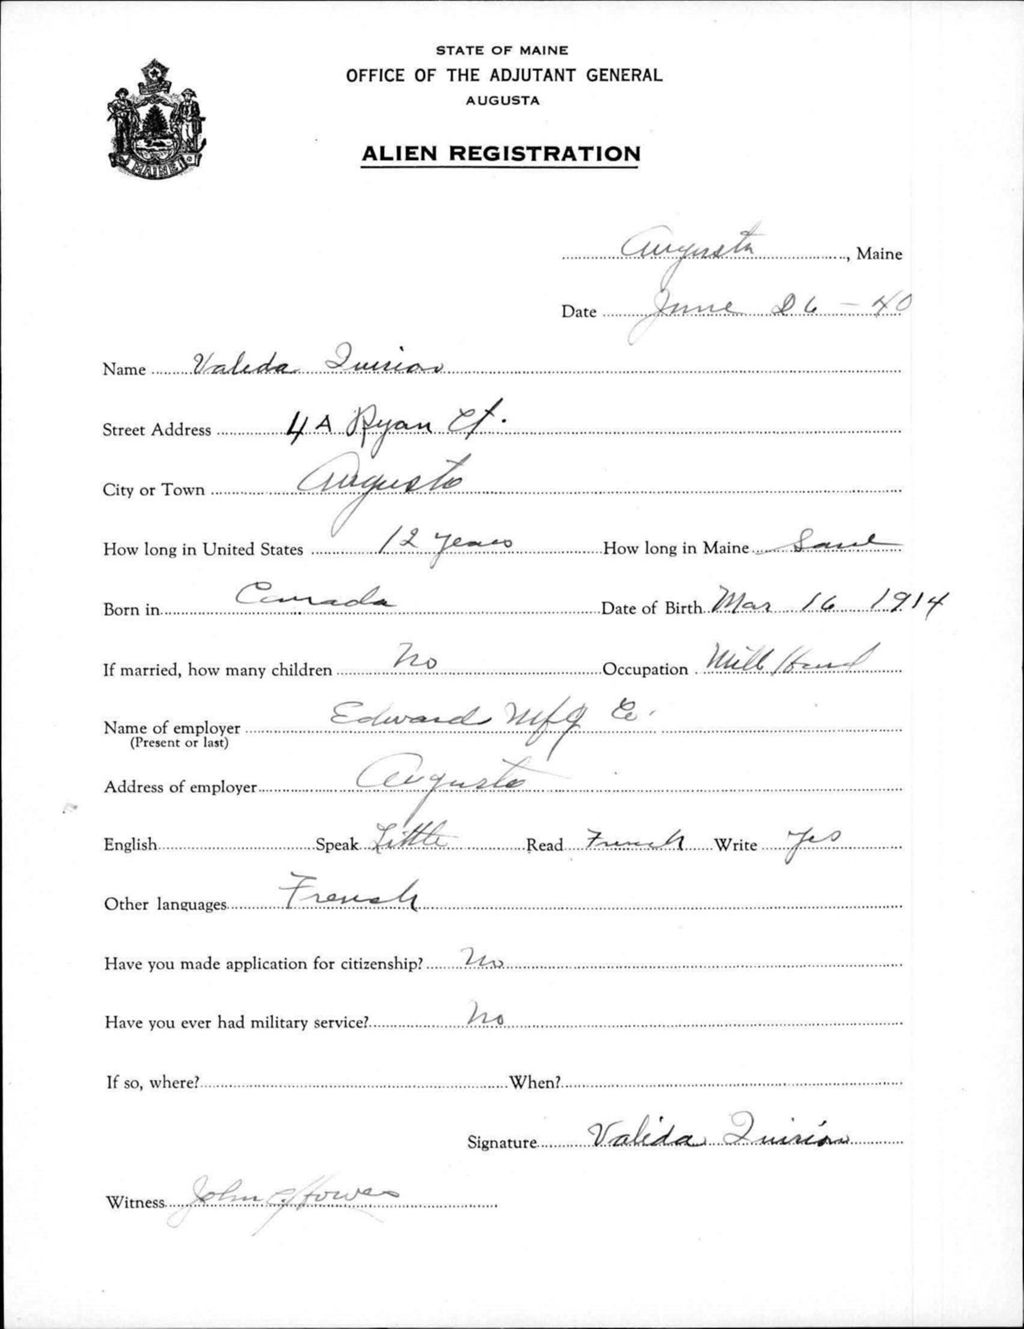 STATE OF MAINE
OFFICE OF THE ADJUTANT GENERAL
AUGUSTA
ALIEN REGISTRATION
MAINE
Augusta, Maine
Date June 26 - 40
Name Valeda Quirion
Street Address 4A Ryan Ct.
City or Town Augusta
How long in United States 12 years How long in Maine Same
Born in Canada Date of Birth Mar 16 1914
If married, how many children No Occupation Mill Hand
Name of employer Edwards Mfg Co.
(Present or last)
Address of employer Augusta
English Speak Little Read French Write Yes
Other languages French
Have you made application for citizenship? No
Have you ever had military service? No
If so, where? When?
Signature Valéda Quirion
Witness John C. Howes